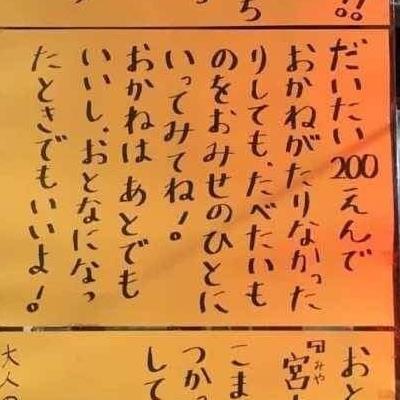 !!
ち
だいたい200えんで
おかねがたりなかった
りしても、たべたいも
のをおみせのひとに
いってみてね!。
おかねは あとでも
いいし、おとなになっ
たときでもいいよ!。
おと
宮
みや
こま
つかっ
して
大人の